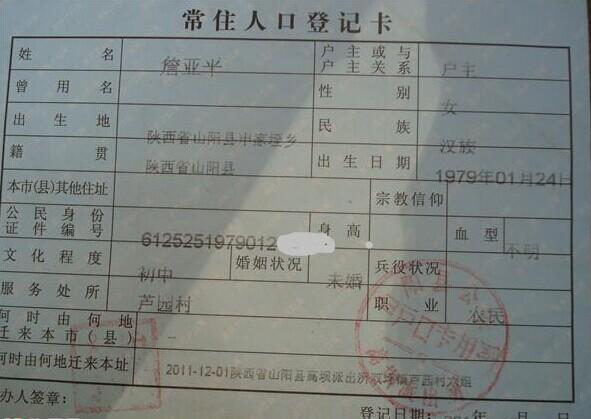 常住人口登记卡
姓名 詹亚平 户主或与户主关系 户主
曾用名 性别 女
出生地 陕西省山阳县中家垤乡 民族 汉族
籍贯 陕西省山阳县 出生日期 1979年01月24日
本市(县)其他住址 宗教信仰
公民身份证件编号 6125251979012 身高 血型 不明
文化程度 初中 婚姻状况 未婚 兵役状况
服务处所 芦园村 职业 农民
何时由何地迁来本市(县)
何时由何地迁来本址 2011-12-01陕西省山阳县高坝派出所 村六组
办人签章: 登记日期: 年 月 日